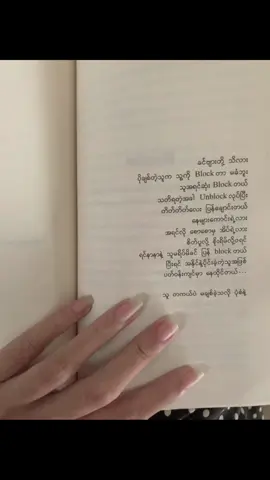 ခင်ဗျားတို့ သိလား
ပိုချစ်တဲ့သူက သူ့ကို Block တာ မခံဘူး
သူအရင်ဆုံး Block တယ်
သတိရတဲ့အခါ Unblock လုပ်ပြီး
တိတ်တိတ်လေး ပြန်ချောင်းတယ်
နေများကောင်းရဲ့လား
အရင်လို စောစောမှ အိပ်ရဲ့လား
စိတ်ပူလို့ စိုးရိမ်လို့ဝရင်
ရင်နာနာနဲ့ သူမရိပ်မိခင် ပြန် block တယ်
ပြီးရင် အနိုင်နဲ့ပိုင်းခဲ့တဲ့သူအဖြစ်
ပတ်ဝန်းကျင်မှာ နေထိုင်တယ်...
သူ တကယ်ပဲ မချစ်ခဲ့သလို ပုံစံနဲ့